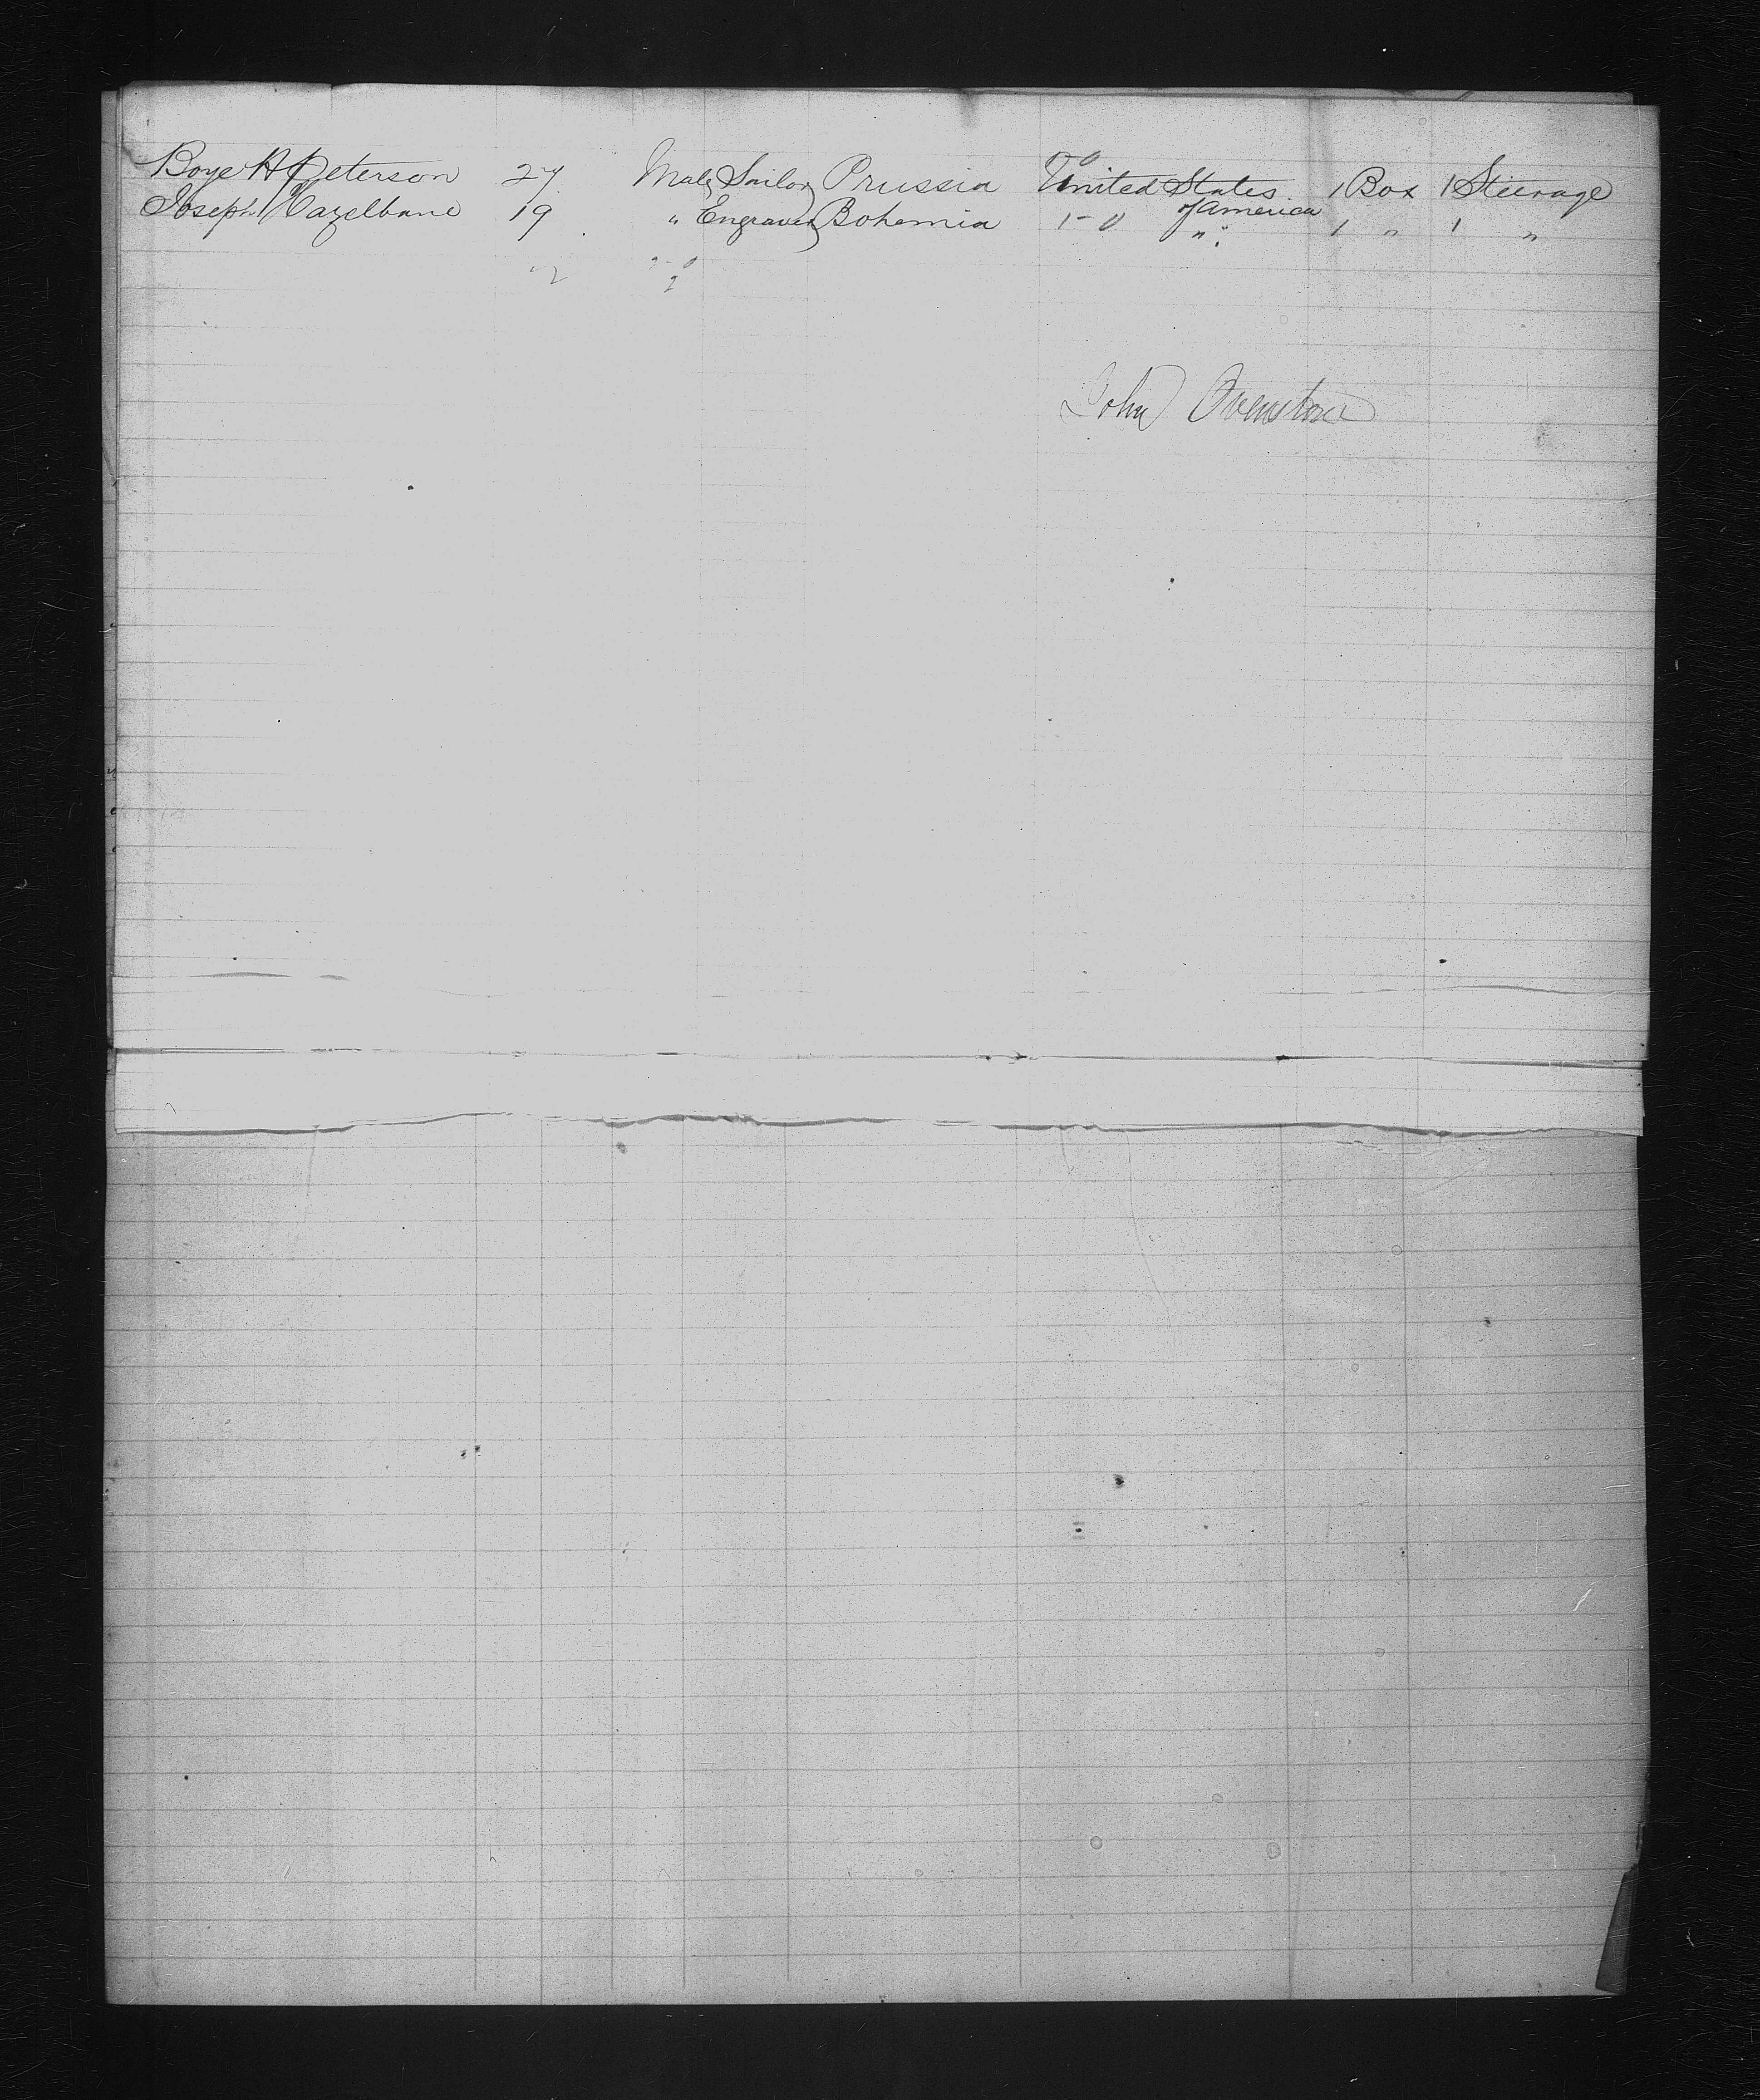 Boye H Peterson 27 Male Sailor Prussia United States of America 1 Box 1 Steerage
Joseph Hazelbane 19 " Engraver Bohemia " 1 " 1 "
2 2
John Ovenstone